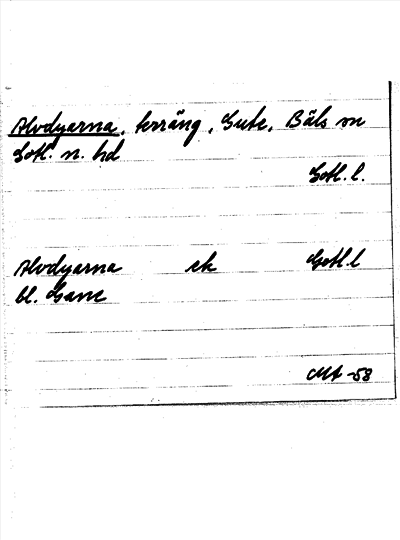 Alvdyarna, terräng, Gute, Bäls sn
Gotl. n. hd
Gotl. l.
Alvdyarna ek Gotl. l
bl. Gane
MA -58